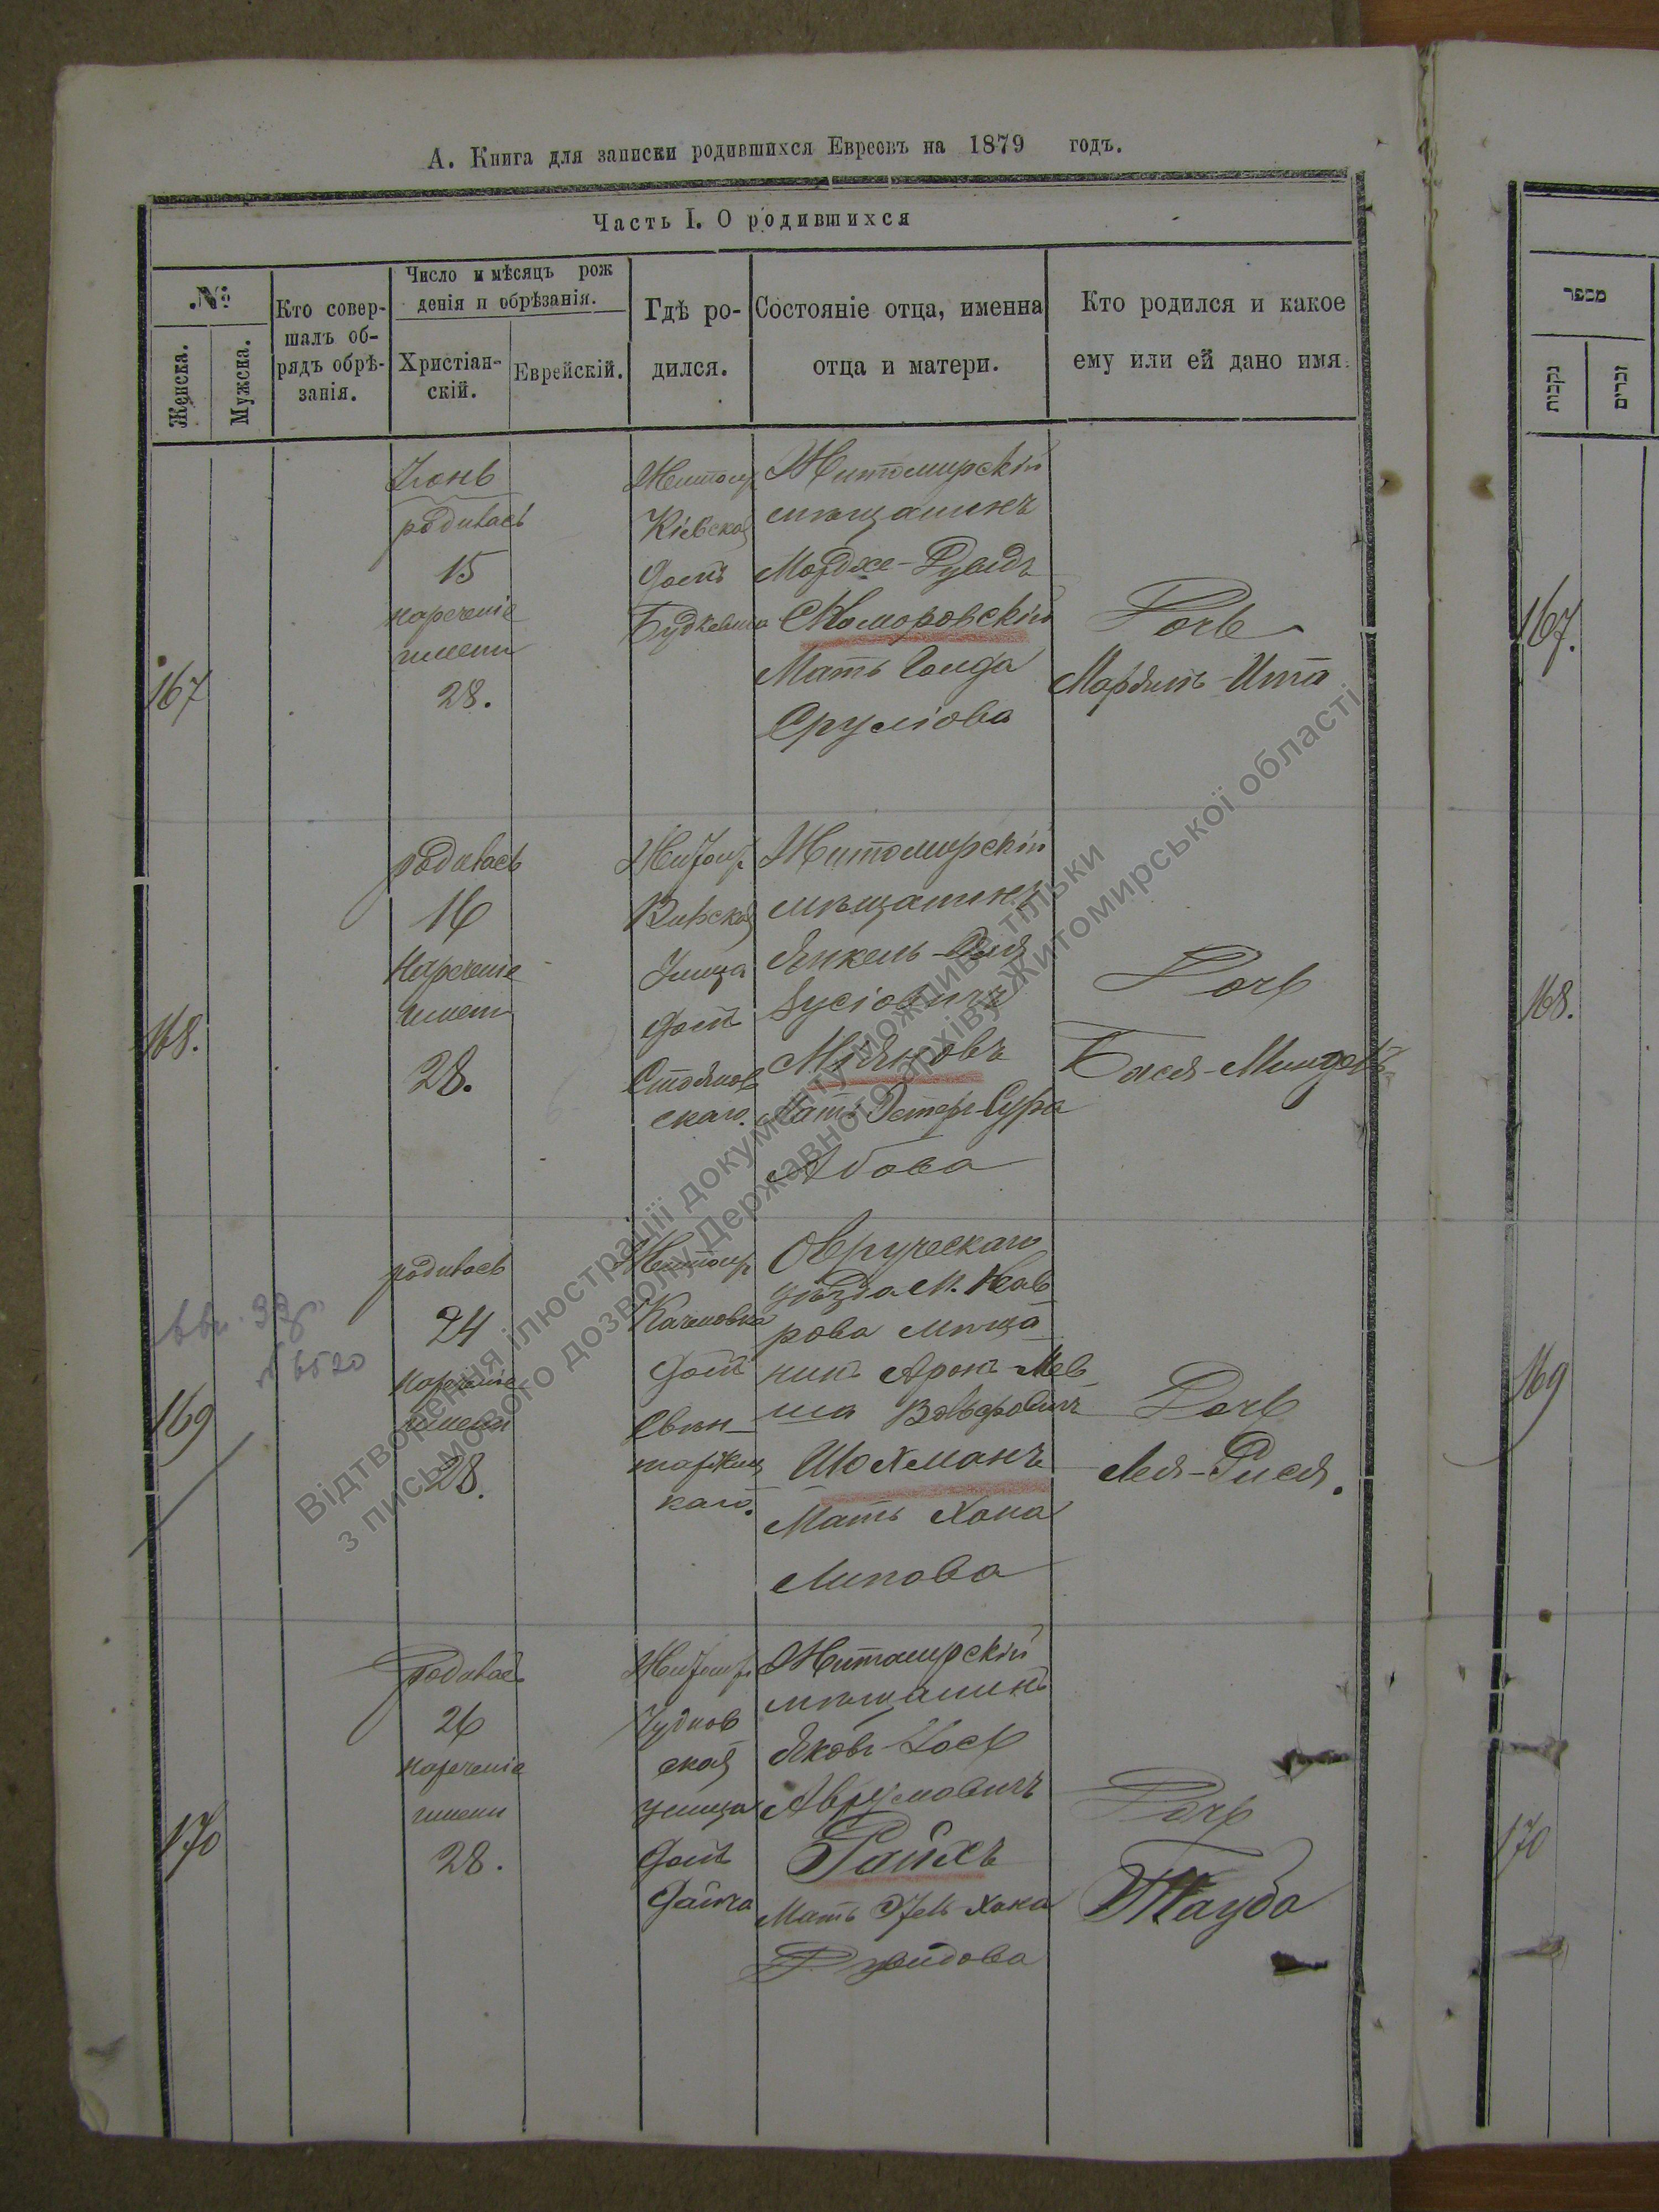 А. Книга для записки родившихся Евреовъ на 1879 годъ.
Часть I. О родившихся
№
Женска.
Мужска.
Кто совер-
шалъ об-
рядъ обрѣ-
занія.
Число и мѣсяцъ рож
денія и обрѣзанія.
Христіан-
скій.
Еврейскій.
Гдѣ ро-
дился.
Состояніе отца, именна
отца и матери.
Кто родился и какое
ему или ей дано имя.
מספר
נקבות
זכרים
167
Іюнь
родилась
15
нареченіе
имени
28.
Житомир
Кіевская
домъ
Житомирскій
мѣщанинъ
Мордхе-Дувидъ
Комаровскій
Мать Голда
Сруліова
Дочь
Ита
167.
168.
родилась
16
Нареченіе
имени
28.
Житомир.
Улица
домъ
Стоянов
скаго.
Житомирскій
мѣщанинъ
Янкель
Зусіовичъ
Мать Эстер-Сура
Абова
Дочь
Бася-Миндель
168.
169
родилась
24
нареченіе
имени
28.
№ 6520
Житомир
домъ
каго.
Овручскаго
уѣзда М. Нав
рова мѣща
нинъ Аронъ-Мев
ша Вольфовичъ
Шохманъ
Мать Хана
Липова
Дочь
Лея-Рися.
169
170
Родилась
26
нареченіе
имени
28.
Житомир
Чуднов
ская
улица
домъ
Житомирскій
мѣщанинъ
Яковъ-Іось
Аврумовичъ
Райхъ
Мать Этель Хана
Дувидова
Дочь
Тауба
170
Відтворення ілюстрації документу можливе тільки
з письмового дозволу Державного архіву Житомирської області